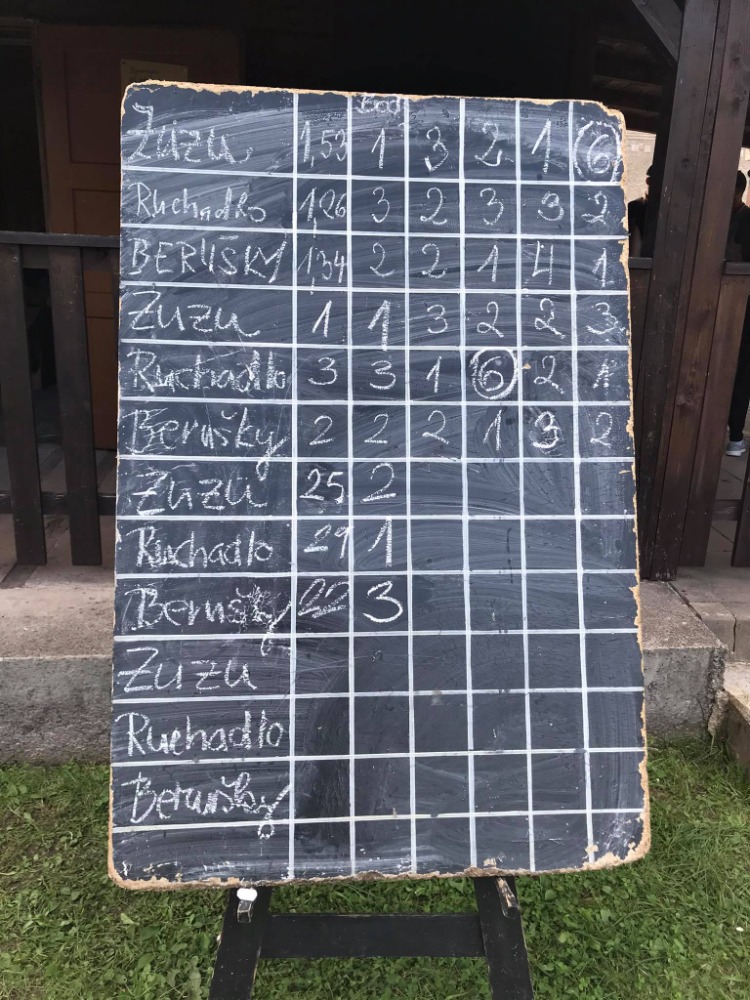 Bod
Zuzu 1,53 1 3 2 1 6
Ruchadlo 1,26 3 2 3 3 2
BERUŠKY 1,34 2 2 1 4 1
Zuzu 1 1 3 2 2 3
Ruchadlo 3 3 1 6 2 1
Berušky 2 2 2 1 3 2
Zuzu 25 2
Ruchadlo 29 1
Berušky 22 3
Zuzu
Ruchadlo
Berušky